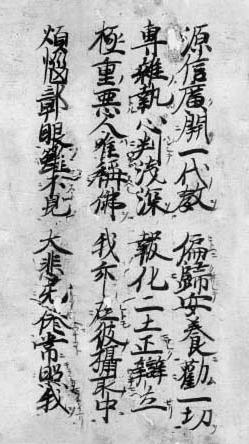 源信廣開一代教 偏歸安養勸一切
專雜執心判浅深 報化二土正辯立
極重悪人唯稱佛 我亦在彼攝取中
煩惱鄣眼雖不見 大悲无倦常照我